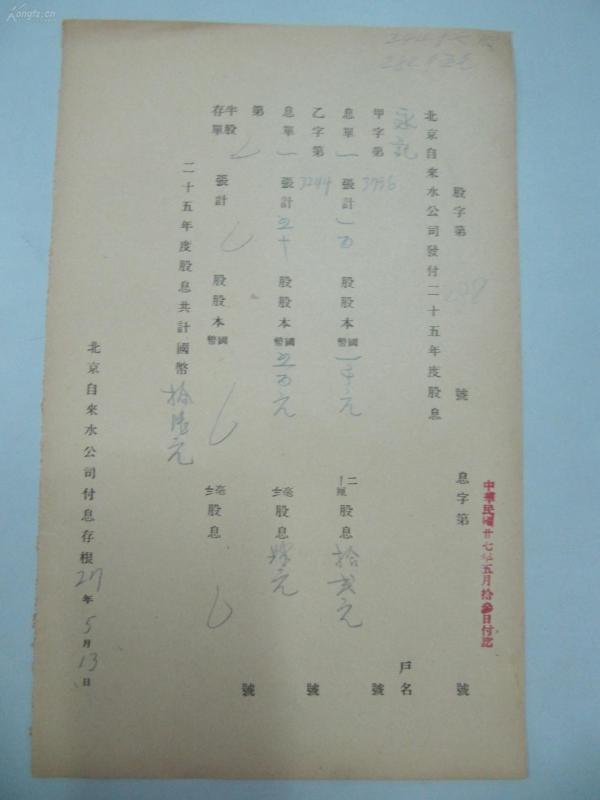 Kongfz.cn
股字第 238 號 息字第 號
中華民國廿七年五月拾叁日付訖
北京自來水公司發付二十五年度股息
永記 戶名
甲字第 3796 號
息單一張計一百股股本國幣一千元 二分一厘股息拾弍元
乙字第 3244 號
息單一張計五十股股本國幣五百元 毫 股息肆元
第 號
半股存單 張計 股股本國幣 毫 股息
二十五年度股息共計國幣拾陸元
北京自來水公司付息存根 27年5月13日